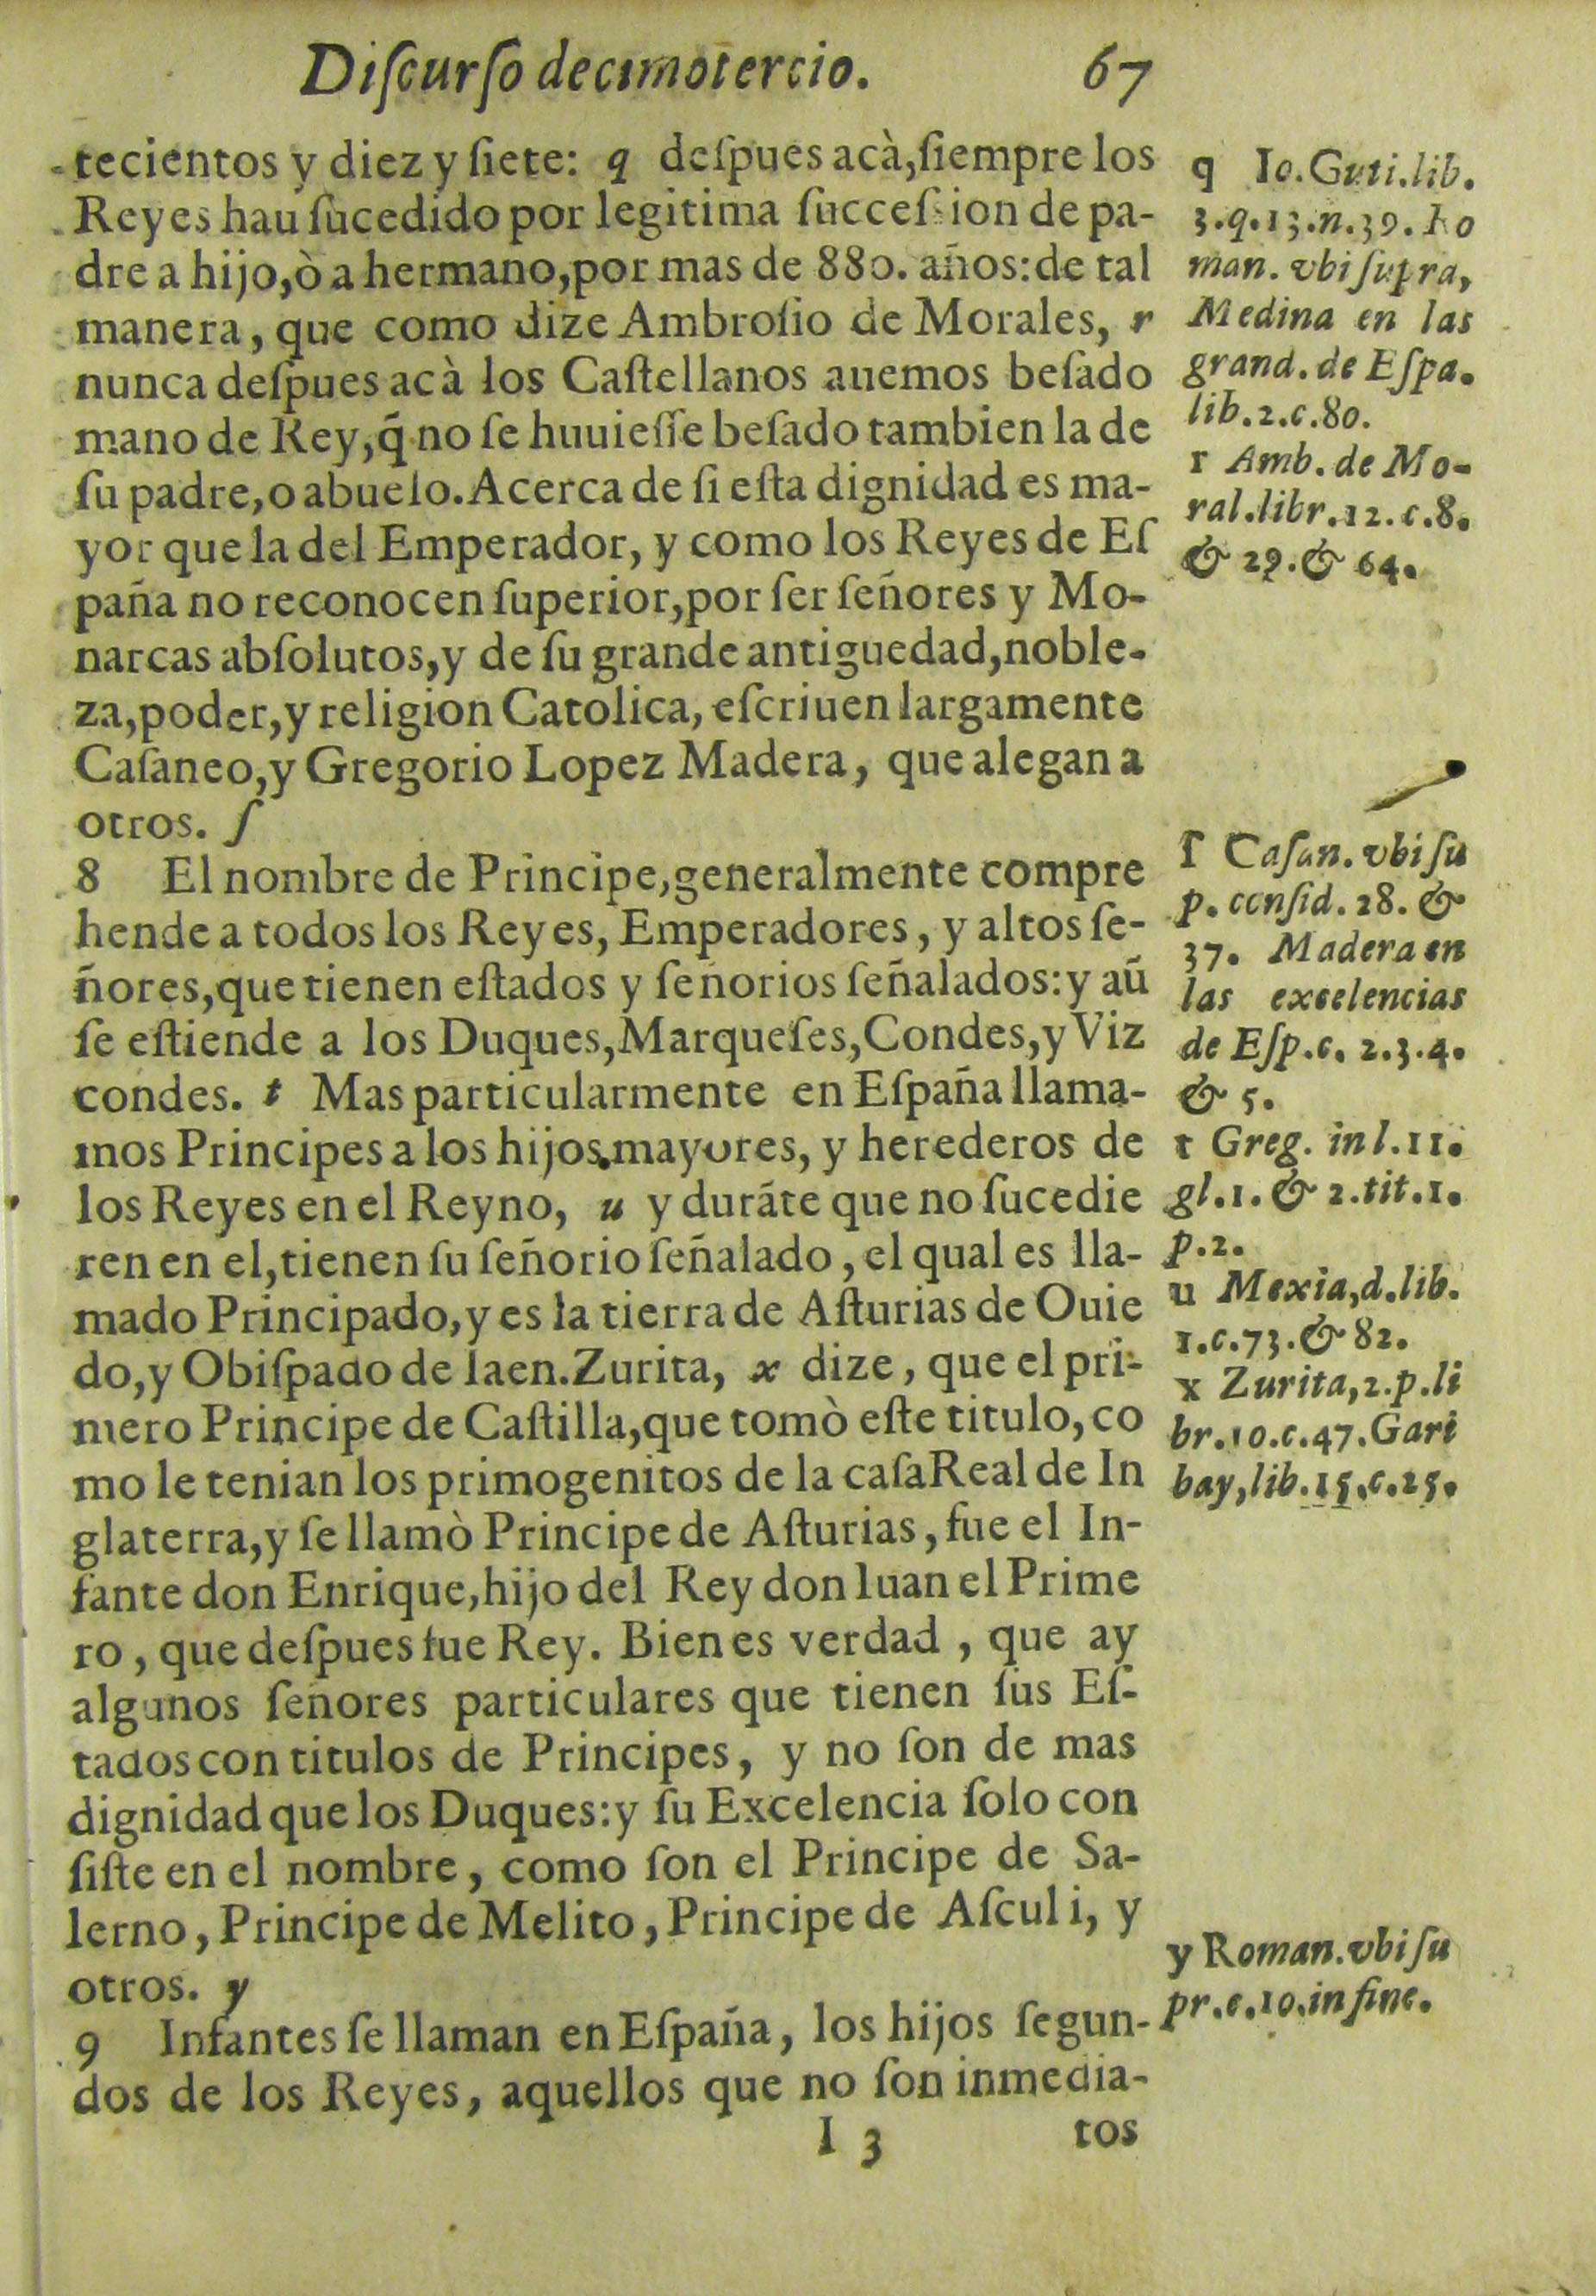 Diſcurſo decimotercio. 67
tecientos y diez y ſiete: q deſpues acà,ſiempre los
Reyes hau ſucedido por legitima ſucceſsion de pa-
dre a hijo,ò a hermano,por mas de 880. años:de tal
manera, que como dize Ambroſio de Morales, r
nunca deſpues acà los Caſtellanos auemos beſado
mano de Rey,q̃ no ſe huuieſſe beſado tambien la de
ſu padre,o abuelo.Acerca de ſi eſta dignidad es ma-
yor que la del Emperador, y como los Reyes de Eſ
paña no reconocen ſuperior,por ſer ſeñores y Mo-
narcas abſolutos,y de ſu grande antiguedad,noble-
za,poder,y religion Catolica, eſcriuen largamente
Caſaneo,y Gregorio Lopez Madera, que alegan a
otros. ſ
8 El nombre de Principe,generalmente compre
hende a todos los Reyes, Emperadores, y altos ſe-
ñores,que tienen eſtados y ſeñorios ſeñalados:y aũ
ſe eſtiende a los Duques,Marqueſes,Condes,y Viz
condes. t Mas particularmente en Eſpaña llama-
mos Principes a los hijos mayores, y herederos de
los Reyes en el Reyno, u y durãte que no ſucedie
ren en el,tienen ſu ſeñorio ſeñalado, el qual es lla-
mado Principado,y es la tierra de Aſturias de Ouie
do,y Obiſpado de Iaen.Zurita, x dize, que el pri-
mero Principe de Caſtilla,que tomò eſte titulo, co
mo le tenian los primogenitos de la caſa Real de In
glaterra,y ſe llamò Principe de Aſturias, fue el In-
fante don Enrique,hijo del Rey don Iuan el Prime
ro, que deſpues fue Rey. Bien es verdad, que ay
algunos ſeñores particulares que tienen ſus Eſ-
tados con titulos de Principes, y no ſon de mas
dignidad que los Duques:y ſu Excelencia ſolo con
ſiſte en el nombre, como ſon el Principe de Sa-
lerno, Principe de Melito, Principe de Aſculi, y
otros. y
9 Infantes ſe llaman en Eſpaña, los hijos ſegun-
dos de los Reyes, aquellos que no ſon inmedia-
I 3 tos
q Io.Guti.lib.
3.q.13.n.39. Ro
man. vbi ſupra,
Medina en las
grand. de Eſpa.
lib.2.c.80.
r Amb. de Mo-
ral.libr.12.c.8.
& 29.& 64.
ſ Caſan. vbi ſu
p. conſid. 28. &
37. Madera en
las excelencias
de Eſp.c. 2.3.4.
& 5.
t Greg. in l.11.
gl.1.& 2.tit.1.
p.2.
u Mexia,d.lib.
1.c.73.& 82.
x Zurita,2.p.li
br.10.c.47.Gari
bay,lib.15.c.25.
y Roman.vbi ſu
pr.c.10.in fine.